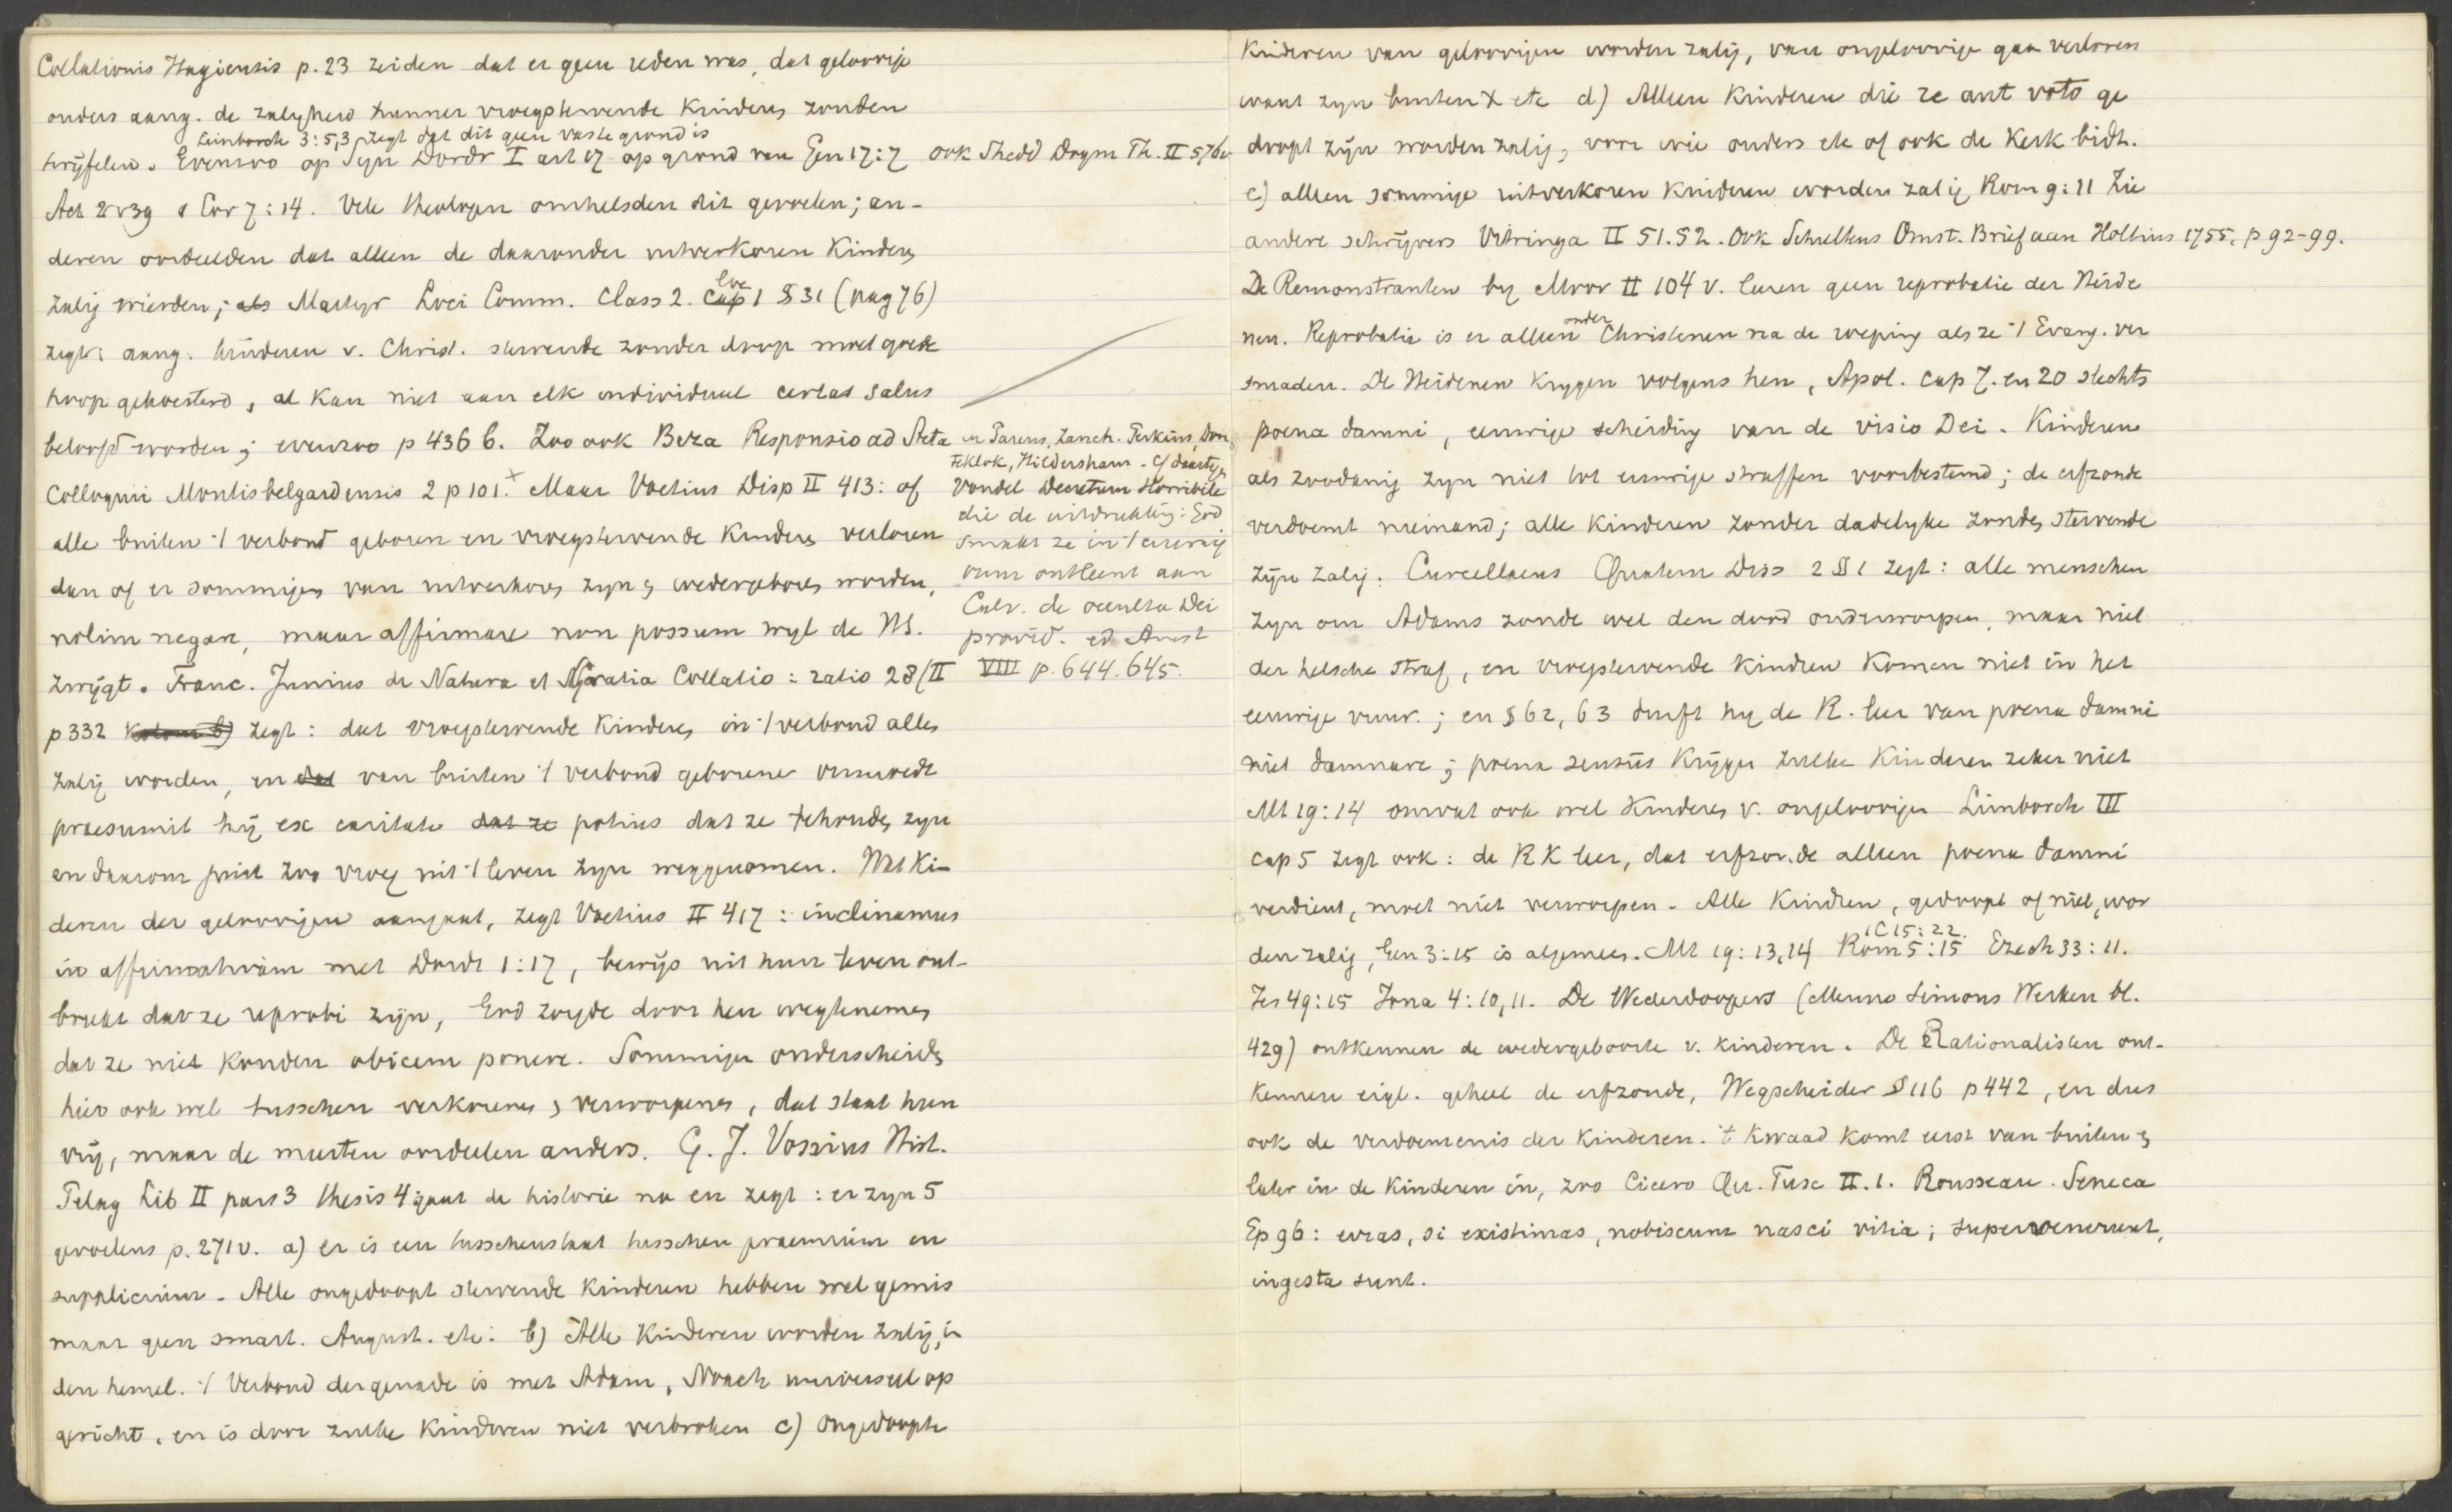 Collationis Hagiensis p. 23 zeiden dat er geen reden was, dat geloovige
ouders aang. de zaligheid hunner vroegstervende kinderen zouden
Limborch 3:5,3 zegt dat dit geen vaste grond is
twijfelen. Evenzoo op Syn Dordr I art 17 op grond van Gen 17:7 ook Shedd Dogm Th. II 576v
Act 2 v 39 1 Cor 7:14. Vele theologen omhelsden dit gevoelen; an-
deren oordeelden dat alleen de daaronder uitverkoren kinderen
loc
zalig wierden; als Martyr Loci Comm. Class 2. Cap 1 § 31 (pag 76)
zegt: aang. kinderen v. Christ. stervende zonder doop moet goede
hoop gekoesterd, al kan niet aan elk individueel certas salus
beloofd worden; evenzoo p 436 b. Zoo ook Beza Responsio ad Acta
Colloquii Montisbelgardensis 2 p 101.+ Maar Voetius Disp II 413: of
alle buiten 't verbond geboren en vroegstervende kinderen verloren
dan of er sommigen van uitverkoren zyn & wedergeboren worden,
nolim negare, maar affirmare non possum wyl de H.S.
zwijgt. Franc. Junius de Natura et Gratia Collatio: ratio 28 (II
p 332 kolom b) zegt: dat vroegstervende kinderen in 't verbond alles
zalig worden, en dat van buiten 't verbond geborene
praesumit hij ex caritate dat ze potius dat ze behouden zyn
en daarom juist zoo vroeg uit 't leven zyn weggenomen. Wat Ki-
deren der geloovigen aangaat, zegt Voetius II 417: inclinamus
in affirmativam met Dordr 1:17, bewijs uit hun leven ont-
breekt dat ze reprobi zijn, God zorgde door hen wegtenemen
dat ze niet konden obicem ponere. Sommigen onderscheiden
hier ook wel tusschen verkorenen & verworpenen, dat staat hun
vrij, maar de meesten oordeelen anders. G. J. Vossius Hist.
Pelag Lib II pars 3 thesis 4 gaat de historie na en zegt: er zyn 5
gevoelens p. 271v. a) er is een tusschenstaat tusschen praemium en
supplicium. Alle ongedoopt stervende kinderen hebben wel gemis
maar geen smart. August. etc: b) Alle kinderen worden zalig, in
den hemel. 't Verbond der genade is met Adam, Noach universeel op
gericht, en is door zulke kinderen niet verbroken c) Ongedoopte
en Pareus, Zanch. Perkins, Don
teklok, Hildersham. Cf daartegen
Vondel Decretum Horribile
die de uitdrukking: God
smakt ze in 't eeuwig
vuur ontleent aan
Calv. de occulta Dei
provid. ed Amst
VIII p. 644. 645.
kinderen van geloovigen worden zalig, van ongeloovige gaan verloren
want zyn buiten X etc d) Alleen kinderen die re aut voto ge
doopt zijn worden zalig, voor wie ouders etc of ook de kerk bidt.
e) alleen sommige uitverkoren kinderen worden zalig Rom 9:11 Zie
andere schrijvers Vitringa II 51. 52. Ook Scheltens Omst. Brief aan Holtius 1755. p 92-99.
De Remonstranten by Moor II 104 v. leeren geen reprobatie der Heide
onder
nen. Reprobatie is er alleen Christenen na de roeping als ze 't Evang. ver
smaden. De Heidenen krygen volgens hen, Apol. cap 7. en 20 slechts
poena damni, eeuwige scheiding van de visio Dei. Kinderen
als zoodanig zyn niet tot eeuwige straffen voorbestemd; de erfzonde
verdoemt niemand; alle kinderen zonder dadelyke zonden stervende
zijn zalig. Curcellaeus Quatern Diss 2 § 1 zegt: alle menschen
zyn om Adams zonde wel den dood onderworpen, maar niet
der helsche straf, en vroegstervende kindren komen niet in het
eeuwige vuur.; en § 62, 63 durft hy de R. leer van poena damni
niet damnare; poena sensus krijgen zulke kinderen zeker niet
Mt 19:14 omvat ook wel kinderen v. ongeloovigen Limborch III
cap 5 zegt ook: de RK leer, dat erfzonde alleen poena damni
verdient, moet niet verworpen. Alle kindren, gedoopt of niet, wor
1 C 15:22.
den zalig, Gen 3:15 is algemeen. Mt 19:13,14 Rom 5:15 Ezech 33:11.
Jes 49:15 Jona 4:10,11. De Wederdoopers (Menno Simons Werken bl.
429) ontkennen de wedergeboorte v. kinderen. De Rationalisten ont-
kennen eigl. geheel de erfzonde, Wegscheider § 116 p 442, en dus
ook de verdoemenis der kinderen. 't Kwaad komt eerst van buiten &
later in de kinderen in, zoo Cicero Qu. Tusc II. 1. Rousseau. Seneca
Ep 96: erras, si existimas, nobiscum nasci vitia; supervenerunt,
ingesta sunt.